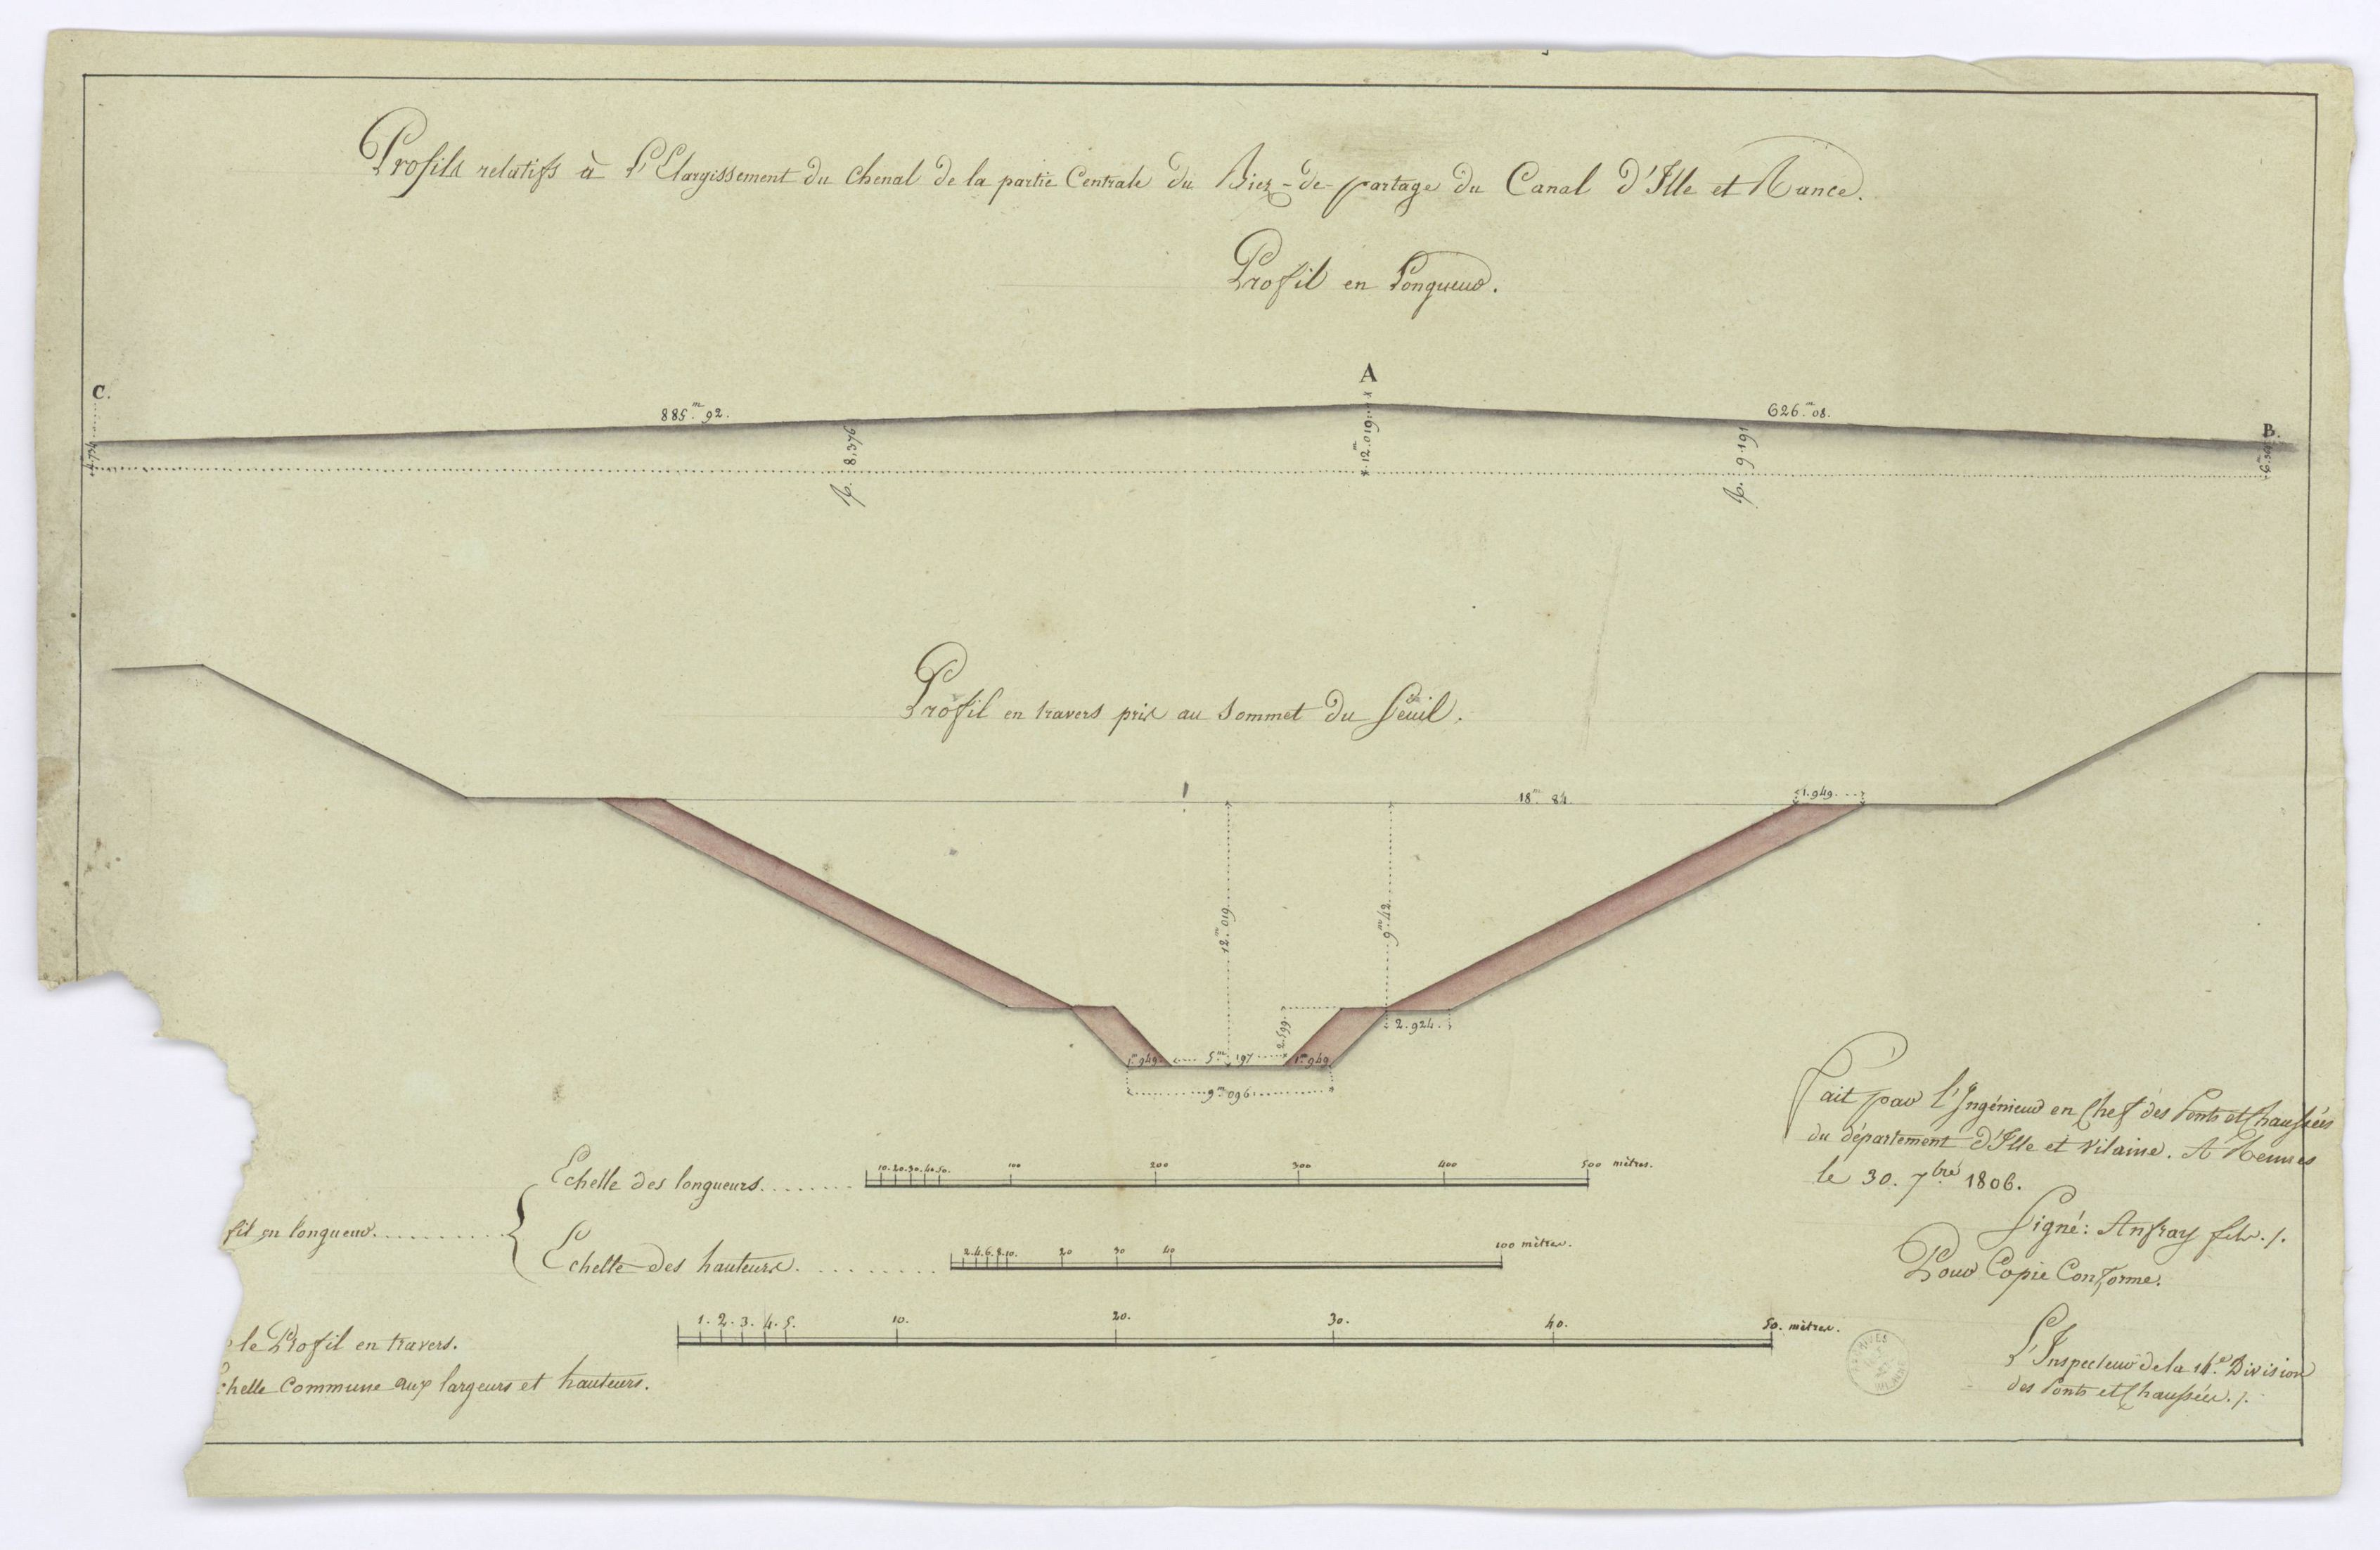 Profils relatifs à L'Elargissement du Chenal de la partie Centrale du Biez-de-partage du Canal d'Ille et Rance.
Profil en Longueur.
C. 885.m 92. A 626.m 08. B.
8.376 12.m 019 9.191
Profil en travers pris au Sommet du Seuil.
18.m 84 1.949.
12.m 019 9.m 42.
2.599 2.924.
1.m 949 5.m 197 1.m 949
9.m 096
Fait par l'Ingénieur en Chef des Ponts et Chaussées
du département d'Ille et Vilaine. A Rennes
le 30. 7bre 1806.
Signé: Anfray fils ./.
Pour Copie Conforme.
L'Inspecteur de la 14.e Division
des Ponts et Chaussées ./.
fil en longueur
Echelle des longueurs 10. 20. 30. 40. 50. 100 200 300 400 500 mètres.
Echelle des hauteurs. 2. 4. 6. 8. 10. 20 30 40 100 mètres.
le Profil en travers. 1. 2. 3. 4. 5. 10. 20. 30. 40. 50. mètres.
chelle Commune aux largeurs et hauteurs.